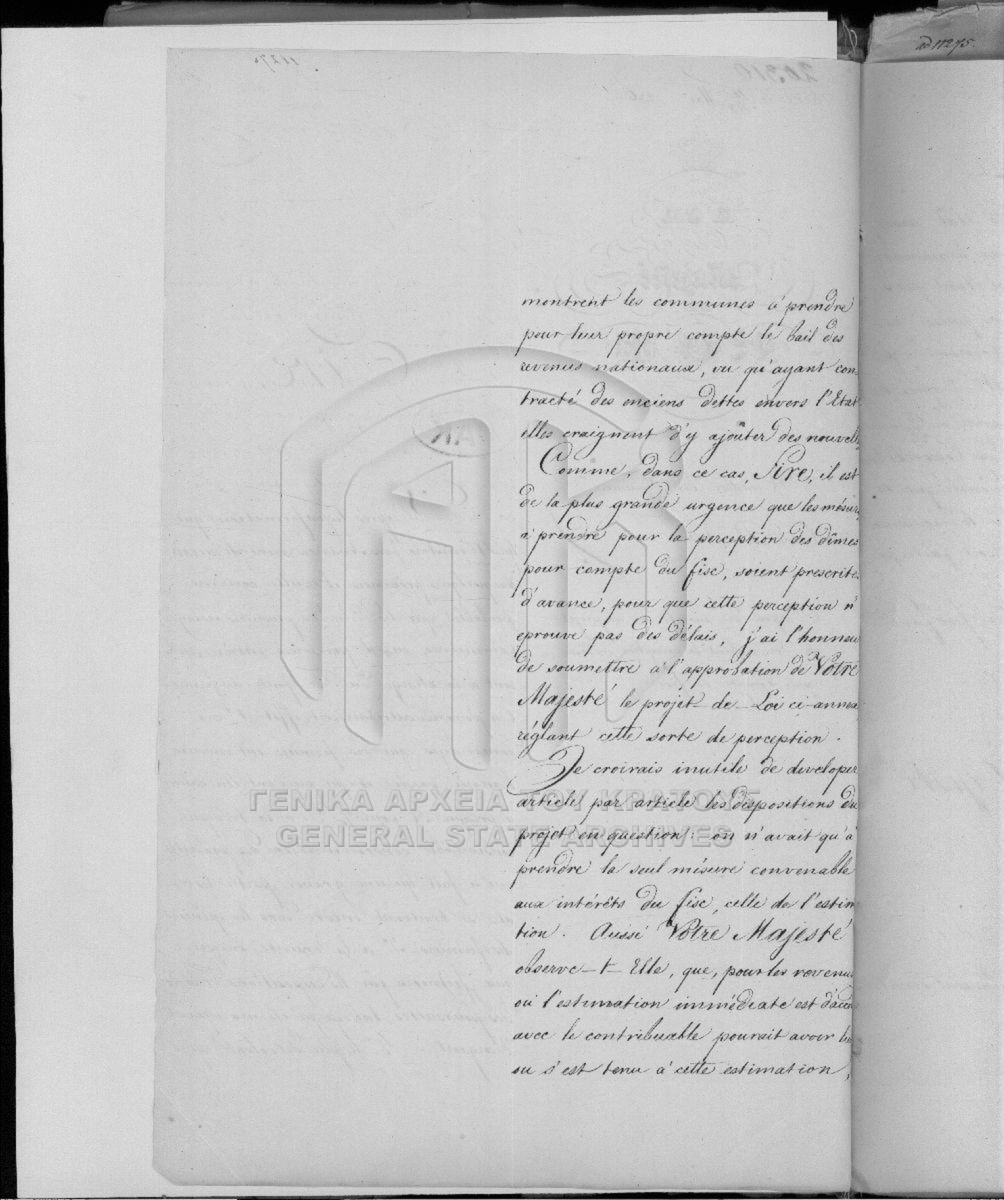 ad 11275.
montrent les communes à prendre
pour leur propre compte le bail des
revenus nationaux, vu qu'ayant con
tracté des enciens dettes envers l'Etat
elles craignent d'y ajoûter des nouvell
Comme, dans ce cas, Sire, il est
de la plus grande urgence que les mésur
à prendre pour la perception des dîmes
pour compte du fisc, soient prescrite
d'avance, pour que cette perception n'
eprouve pas des délais, j'ai l'honneu
de soumettre à l'approbation de Votre
Majesté le projet de Loi ci-annex
réglant cette sorte de perception.
Je croirais inutile de developer
article par article les dispositions du
projet en question: on n'avait qu'à
prendre la seul mésure convenable
aux intérêts du fisc, celle de l'estim
tion. Aussi Votre Majesté
observe-t-Elle, que, pour les revenu
où l'estimation immédiate est d'acco
avec le contribuable pourait avoir li
ou s'est tenu à cette estimation,
ΓΕΝΙΚΑ ΑΡΧΕΙΑ ΤΟΥ ΚΡΑΤΟΥΣ
GENERAL STATE ARCHIVES